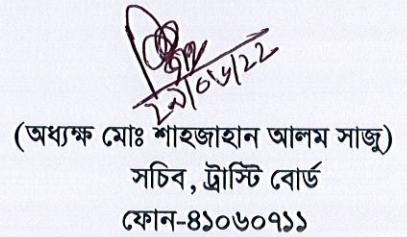 (অধ্যক্ষ মোঃ শাহজাহান আলম সাজু)
সচিব, ট্রাস্টি বোর্ড
ফোন-৪১০৬০৭১১